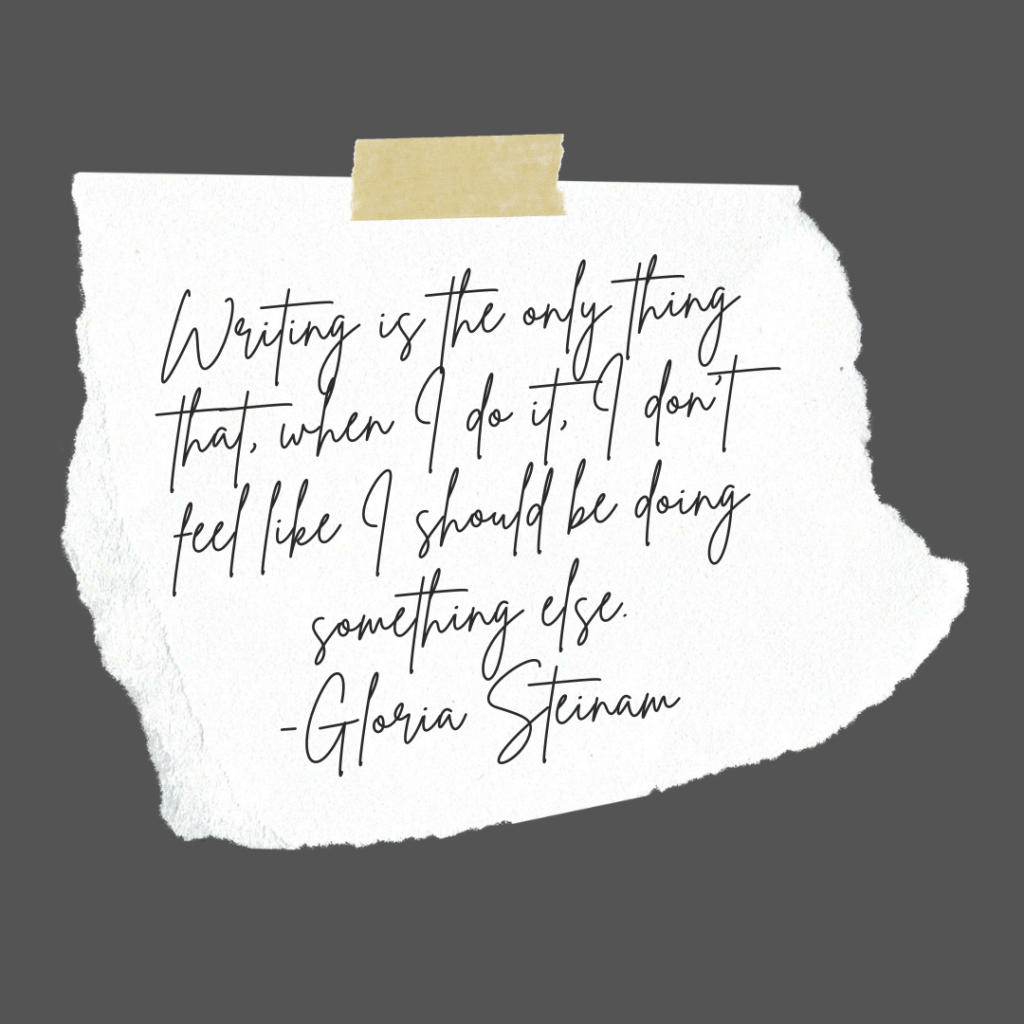 Writing is the only thing
that, when I do it, I don't
feel like I should be doing
something else.
-Gloria Steinam